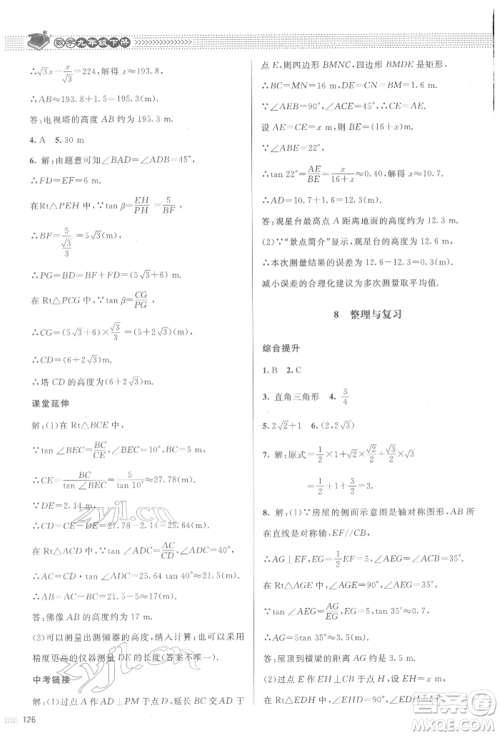 数学九年级下册
∴√3x-x=224,解得 x≈193.8,
∴AB≈193.8+1.5=195.3(m).
答:电视塔的高度 AB 约为 195.3 m.
4. A  5. 30 m
6. 解:由题意可知∠BAD=∠ADB=45°,
∴FD=EF=6 m.
在 Rt△PEH 中,∵tan β=EH/PH=5/BF,
∴BF=5/(√3/3)=5√3(m).
∴PG=BD=BF+FD=(5√3+6)m.
在 Rt△PCG 中,∵tan β=CG/PG,
∴CG=(5√3+6)×√3/3=(5+2√3)(m).
∴CD=(5+2√3)m.
∴塔 CD 的高度为(5+2√3)m.
课堂延伸
解:(1)∵在 Rt△BCE 中,
∴tan ∠BEC=BC/CE,
∴CE=BC/tan ∠BEC=5/tan 10°≈27.78(m).
∵DE=2.14 m,
∴CD=27.78-2.14=25.64(m).
在 Rt△ACD 中,∵tan ∠ADC=AC/CD,
∴AC=CD·tan ∠ADC≈
∴AB=
答:佛像 AB 的高度约为 17 m.
(2)可以测量出测倾器的高度,纳入计算;用
精度更高的仪器测量 DE 的长度(答案不唯一).
中考链接
解:(1)过点 A 作 AD⊥PM,延长 BC 交 AD 于
点 E,则四边形 BMNC,四边形 BMDE 是矩形.
∴BC=MN=16 m,DE=CN=BM=1.6 m.
∵∠AEB=90°,∠ACE=45°,
∴△ACE 是等腰直角三角形.
∴CE=AE.
设 AE=CE=x m,∴BE=(16+x)m.
∵∠ABE=22°,
∴tan 22°=AE/BE=x/(16+x)≈0.40,解得 x≈10.7.
∴AD≈10.7+1.6=12.3(m).
答:观星台最高点 A 距离地面的高度约为 12.3 m.
(2)∵“景点简介”显示,观星台的高度为 12.6 m,
∴本次测量结果的误差为 12.6-12.3=0.3(m).
减小误差的合理化建议为多次测量取平均值.
8 整理与复习
综合提升
1. B  2. C
3. 直角三角形  4. 3/4
5. 2√2+1  6. (2+2√2)
7. 解:原式=1/2×1+1/2×√3×√3=1/2+3/2=2.
8. 解:(1)∵房屋的侧面示意图是轴对称图形,AB
所在直线是对称轴,EF//CB,
∴AG⊥EF,EG=1/2EF,∠AEG=∠ACB=35°.
在 Rt△AEG 中,∵∠AGE=90°,∠AEG=35°,
∴tan ∠AEG=AG/EG,
∴AG=
答:屋顶到横梁的距离 AG 约为 4.2 m.
(2)过点 E 作 EH⊥CB 于点 H,设 EH=x m.
在 Rt△EDH 中,∵∠EHD=90°,∠EDH=
126